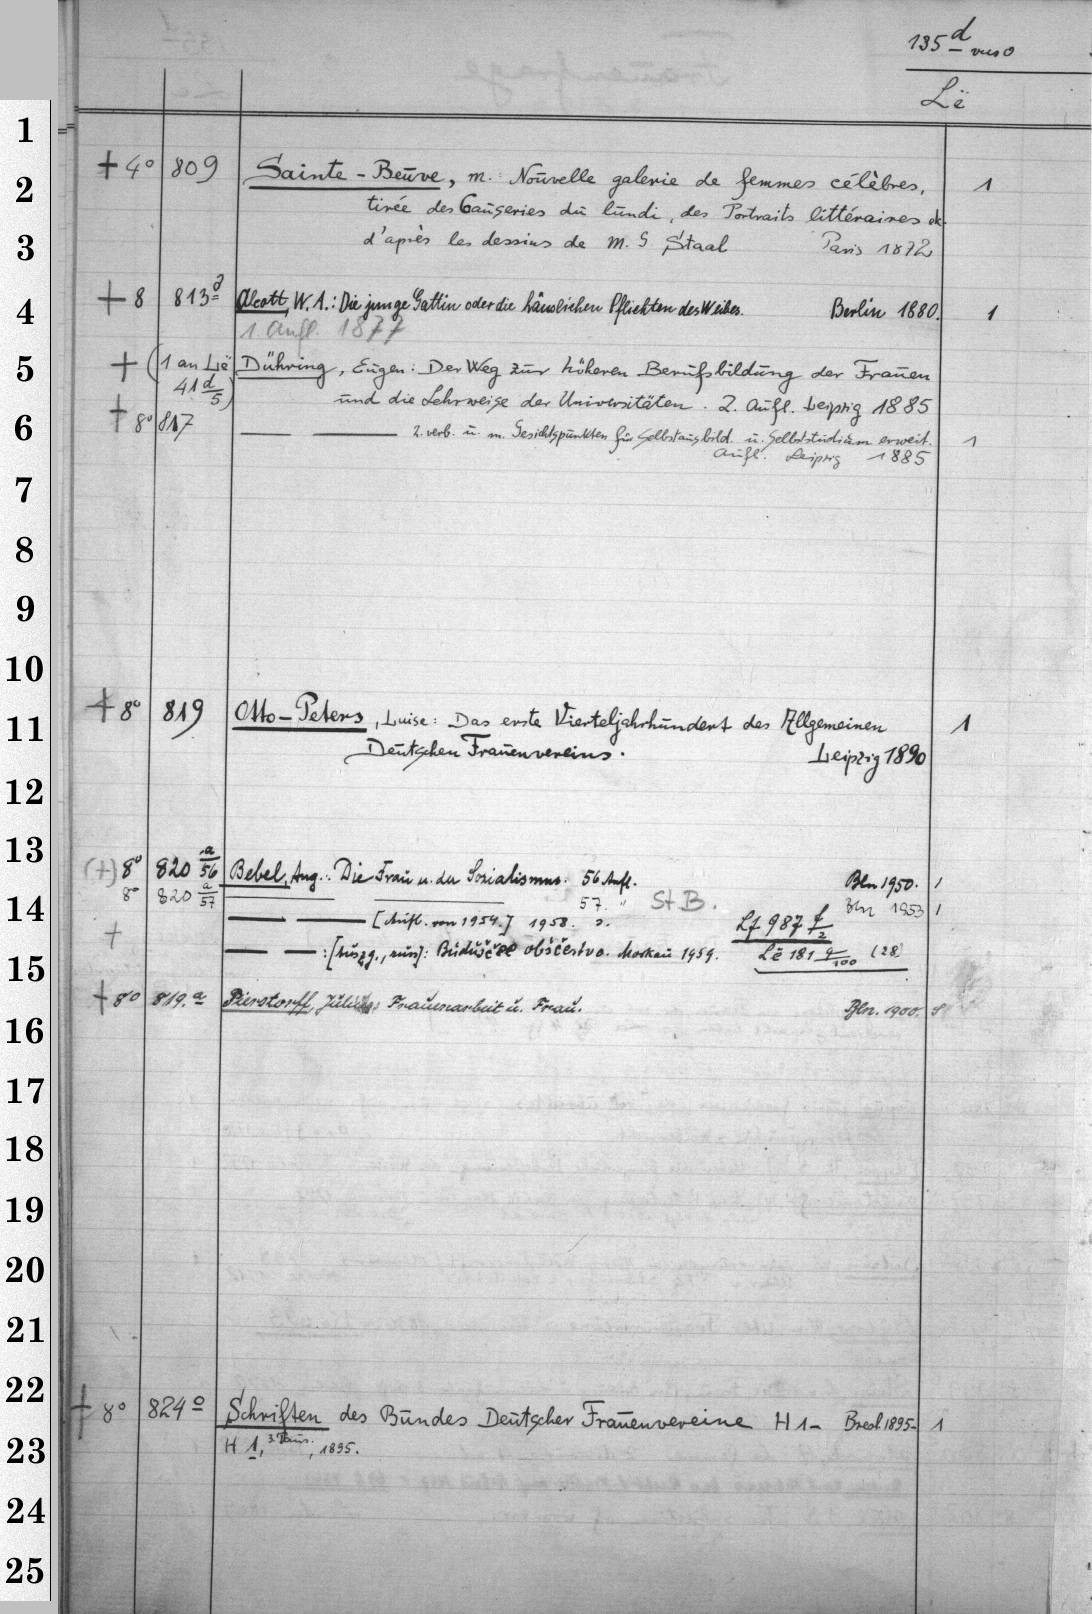 135 d verso
Lë
1
+ 4° 809 Sainte-Beuve, M.: Nouvelle galerie de femmes célèbres,
2 1
tirée des Causeries du lundi, des Portraits littéraires etc.
3 d'après les dessins de M. G Staal Paris 1872
+ 8 813 d Alcott, W. A.: Die junge Gattin oder die häuslichen Pflichten des Weibes. Berlin 1880. 1
4 1 Aufl. 1877
5 + (1 an Lë Dühring, Eugen: Der Weg zur höheren Berufsbildung der Frauen
41 d/5) und die Lehrweise der Universitäten. 2. Aufl. Leipzig 1885
6 + 8° 817 — — 2. verb. u. m. Gesichtspunkten für Selbstausbild. u. Selbststudium erweit. 1
Aufl. Leipzig 1885
7
8
9
10
+ 8° 819 Otto-Peters, Luise: Das erste Vierteljahrhundert des Allgemeinen 1
11 Deutschen Frauenvereins. Leipzig 1890
12
13
(+) 8° 820 a/56 Bebel, Aug.: Die Frau u. der Sozialismus. 56 Aufl. Bln 1950. 1
8° 820 a/57 57. " St B. Bln 1953 1
14 — — [Aufl. von 1954.] 1958. Lf 987 f/2
+ — — : [Ausz., russ]: Buduščee obščestvo. Moskau 1959. Lë 181 q/100 (28)
15
+ 8° 819.a Pierstorff, Julius: Frauenarbeit u. Frau. Bln. 1900.
16
17
18
19
20
21
22
+ 8° 824 o Schriften des Bundes Deutscher Frauenvereine H 1- Bresl. 1895- 1
23 H 1, 3. Taus., 1895.
24
25